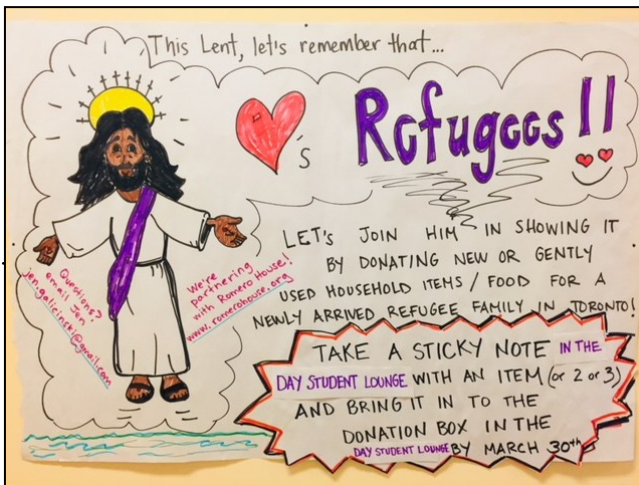 This Lent, let's remember that...
's Refugees!!
LET's JOIN HIM IN SHOWING IT
BY DONATING NEW OR GENTLY
USED HOUSEHOLD ITEMS / FOOD FOR A
NEWLY ARRIVED REFUGEE FAMILY IN TORONTO!
Questions?
email Jen:
jen.galicinski@gmail.com
We're
partnering
with Romero House!
www.romerohouse.org
TAKE A STICKY NOTE IN THE
DAY STUDENT LOUNGE WITH AN ITEM (or 2 or 3)
AND BRING IT IN TO THE
DONATION BOX IN THE
DAY STUDENT LOUNGE BY MARCH 30th